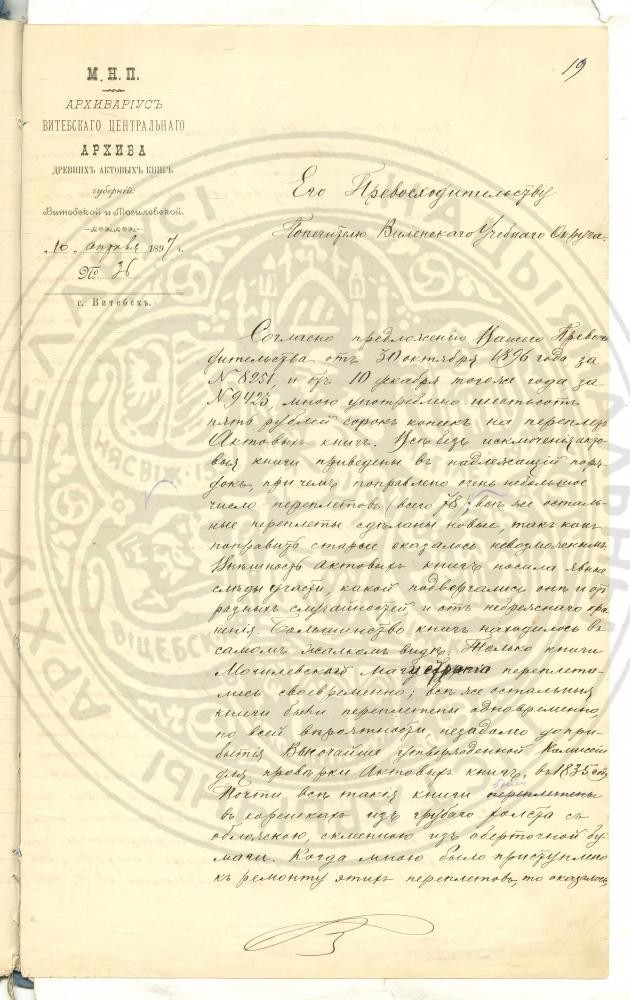 19
М. Н. П.
АРХИВАРІУСЪ
ВИТЕБСКАГО ЦЕНТРАЛЬНАГО
АРХИВА
ДРЕВНИХЪ АКТОВЫХЪ КНИГЪ
губерній:
Витебской и Могилевской.
„10" апрѣля 1897 г.
№ 36
г. Витебскъ.
Его Превосходительству
Попечителю Виленскаго Учебнаго Округа.
Согласно предложенію Вашего Превосхо
дительства отъ 30 октября 1896 года за
№ 8251, и отъ 10 декабря того же года за
№ 9423, мною употреблено шестьсотъ
пять рублей сорокъ копеекъ на переплетъ
Актовыхъ книгъ. Всѣ безъ исключенія акто
выя книги приведены въ надлежащій поря
докъ, при чемъ поправлено очень небольшое
число переплетовъ (всего 78); всѣ же осталь
ные переплеты сдѣланы новые, такъ какъ
поправить старые оказалось невозможнымъ.
Внѣшность актовыхъ книгъ носила явные
слѣды участи, какой подвергались онѣ и отъ
разныхъ случайностей и отъ небрежнаго хра
ненія. Большинство книгъ находилось въ
самомъ жалкомъ видѣ. Только книги
Могилевскаго Магистрата перепле­та
лись своевременно; всѣ же остальныя
книги были переплетены одновременно,
по всей вѣроятности, незадолго до при
бытія Высочайше утвержденной Комиссіи
для провѣрки Актовыхъ книгъ, въ 1835 году.
Почти всѣ такія книги были переплетены
въ корешкахъ изъ грубаго холста съ
обложкою, склеенною изъ оберточной бу
маги. Когда мною было приступлено
къ ремонту этихъ переплетовъ, то оказалось,